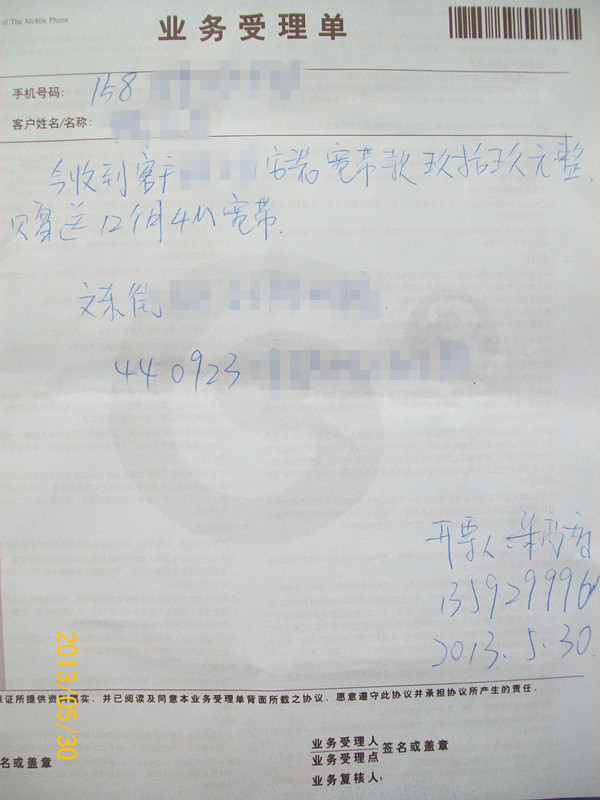 of The Mobile Phone
业务受理单
手机号码: 158
客户姓名/名称:
今收到客户 安装宽带款玖拾玖元整.
贝曾送12个月4M宽带.
文东街
440923
开票人:
135929996
2013.5.30.
证所提供资 实，并已阅读及同意本业务受理单背面所载之协议，愿意遵守此协议并承担协议所产生的责任.
名或盖章
业务受理人
业务受理点
签名或盖章
业务复核人:
2013/05/30